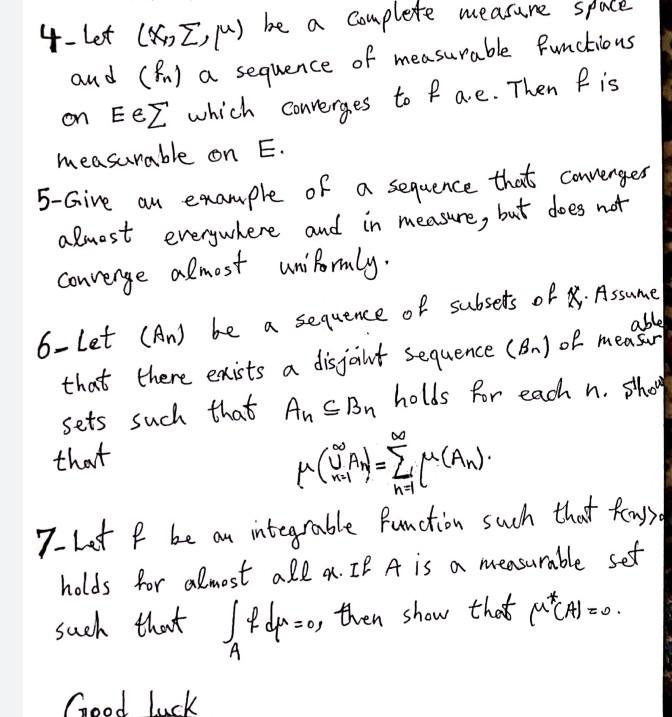 4- Let (X, Σ, μ) be a complete measure space
and (fn) a sequence of measurable functions
on E∈Σ which converges to f a.e. Then f is
measurable on E.
5-Give an example of a sequence that converges
almost everywhere and in measure, but does not
converge almost uniformly.
6- Let (An) be a sequence of subsets of X. Assume
that there exists a disjoint sequence (Bn) of measurable
sets such that An ⊆ Bn holds for each n. Show
that μ(⋃_{n=1}^{∞} An) = ∑_{n=1}^{∞} μ(An).
7- Let f be an integrable function such that f(x)>0
holds for almost all x. If A is a measurable set
such that ∫_A f dμ=0, then show that μ*(A)=0.
Good luck